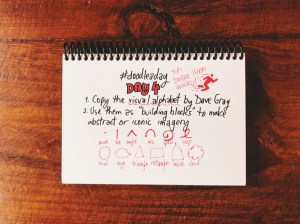 #doodleaday
DAY 4
TIP:
1. Copy the visual alphabet by Dave Gray
2. Use them as "building blocks" to make
abstract or iconic imagery
point line angle arc spiral loop
oval eye triangle rectangle house cloud